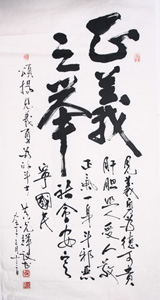 正義
之舉
見義勇為德可貴
肝胆照人人義
正氣一身斗邪惡
社會安定
寧國民
頌揚見義勇為的斗士